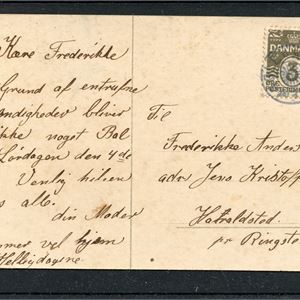 Kære Frederikke
Grund af entrufne
ændigheder bliver
ikke noget Bal
Lørdagen den 4de
Venlig hilsen
s alle.
din Moder
mmer vel hjem
Helligdagene
DANMARK
3
Til
Frederikke Ander
adr Jens Kristoff
Haraldsted
pr Ringste